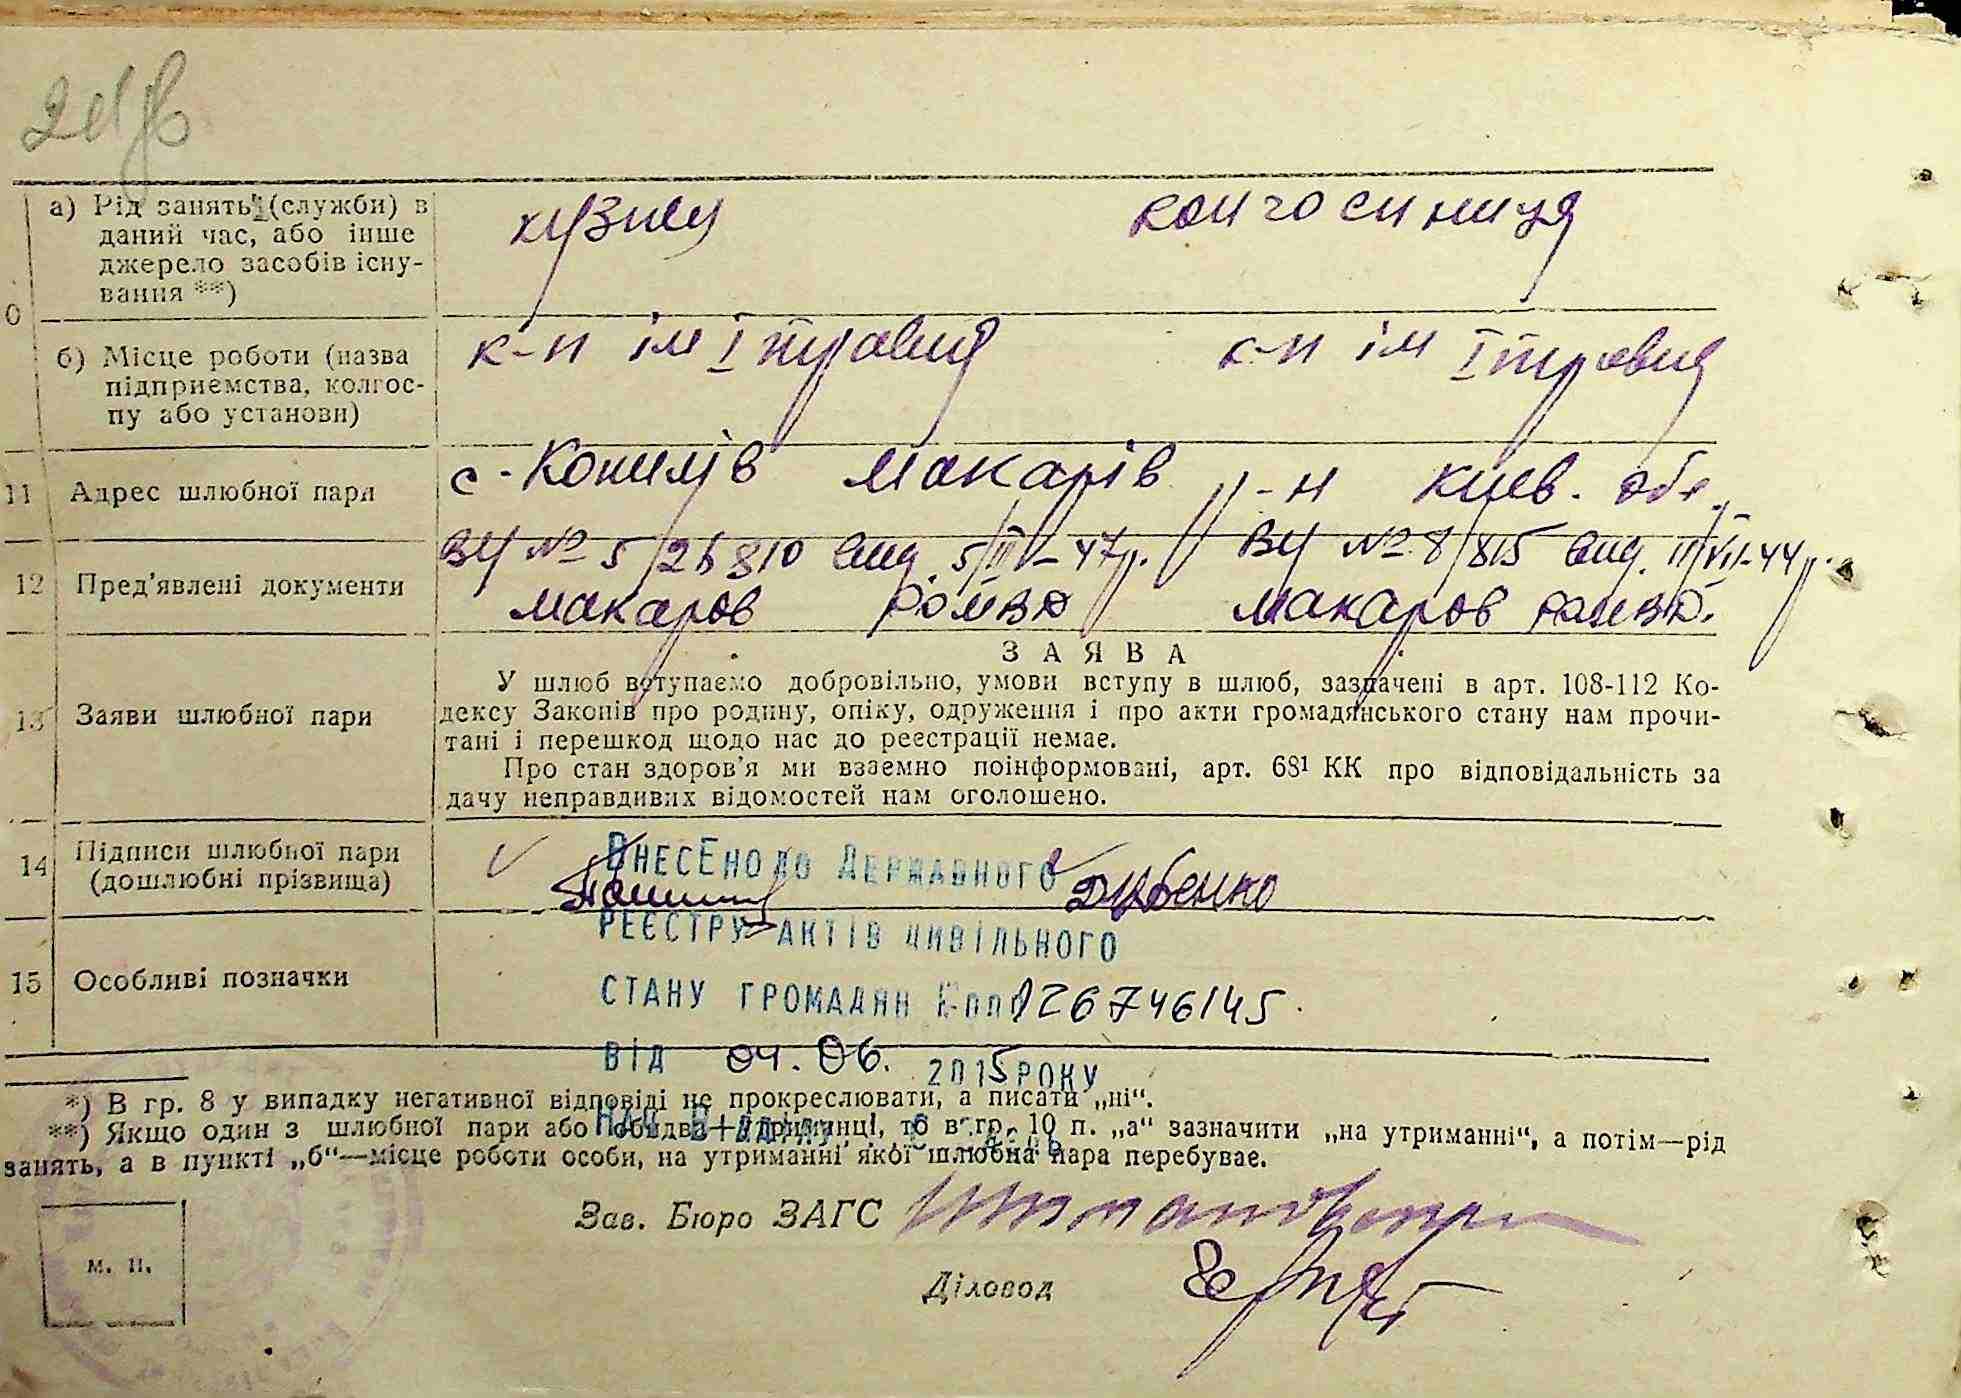 а) Рід занять (служби) в
даний час, або інше
джерело засобів існу-
вання **)
колгоспниця
б) Місце роботи (назва
підприємства, колгос-
пу або установи)
к-п ім І травня к-п ім І травня
11 Адрес шлюбної пари
с. Копилів Макарів р-н Киев. обл.
12 Пред’явлені документи
ВУ № 5/26810 вид. 5/III-47р. ВУ № 8/815 вид. 11/VII-44р.
Макаров РОМВД Макаров РОМВД.
13 Заяви шлюбної пари
ЗАЯВА
У шлюб вступаємо добровільно, умови вступу в шлюб, зазначені в арт. 108-112 Ко-
дексу Законів про родину, опіку, одруження і про акти громадянського стану нам прочи-
тані і перешкод щодо нас до реєстрації немає.
Про стан здоров’я ми взаємно поінформовані, арт. 68¹ КК про відповідальність за
дачу неправдивих відомостей нам оголошено.
14 Підписи шлюбної пари
(дошлюбні прізвища)
Дубенко
ВНЕСЕНО ДО ДЕРЖАВНОГО
РЕЄСТРУ АКТІВ ЦИВІЛЬНОГО
СТАНУ ГРОМАДЯН 126746145.
ВІД 04.06. 2015 РОКУ
15 Особливі позначки
*) В гр. 8 у випадку негативної відповіді не прокреслювати, а писати „ні“.
**) Якщо один з шлюбної пари або обидва утриманці, то в гр. 10 п. „а“ зазначити „на утриманні“, а потім—рід
занять, а в пункті „б“—місце роботи особи, на утриманні якої шлюбна пара перебуває.
Зав. Бюро ЗАГС
Діловод
м. п.